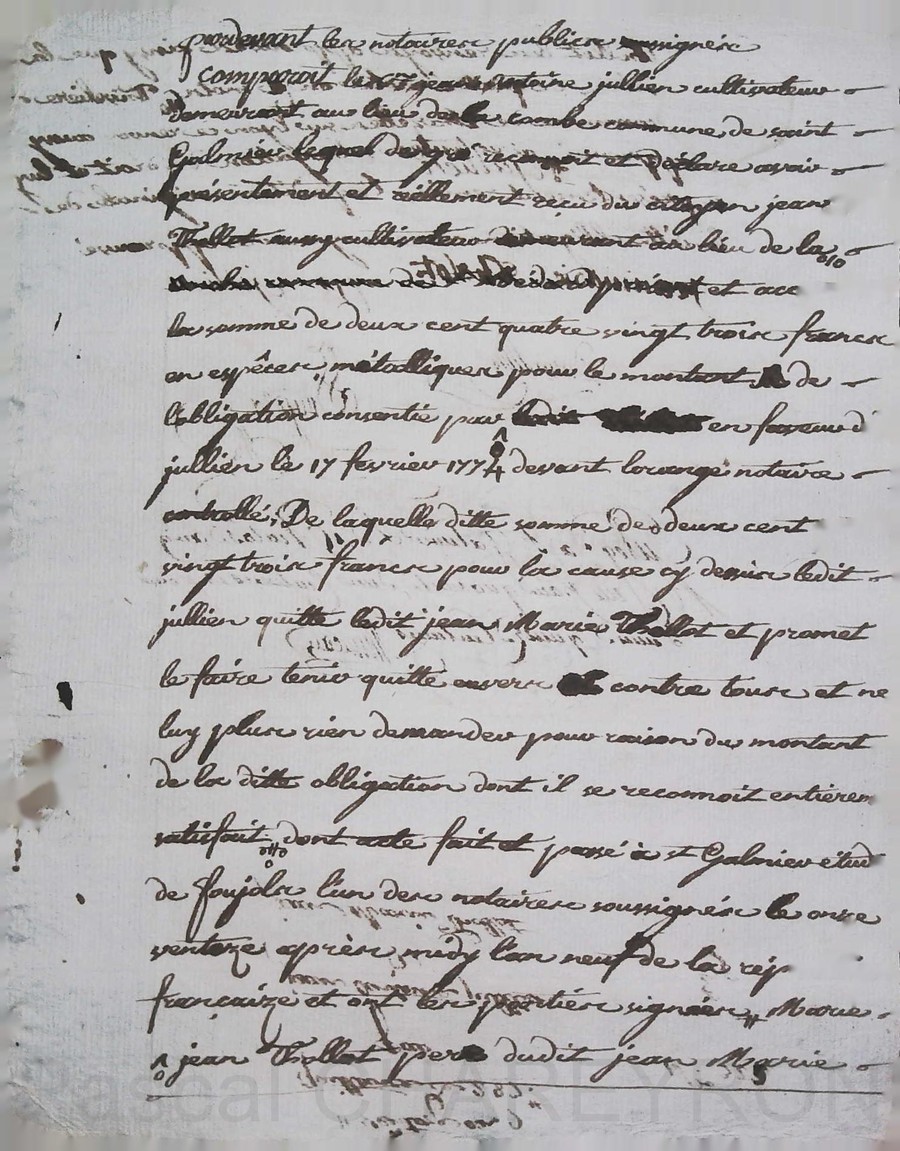 pardevant les notaires publics soussignés
comparait le C. jean antoine jullien cultivateur
demeurant au lieu de la combe commune de saint
Galmier lequel de gré reconnoit et déclare avoir
présentement et réellement reçu du citoyen jean
Thollot aussy cultivateur demeurant au lieu de la
commune de et acc
la somme de deux cent quatre vingt trois francs
en espêces métalliques pour le montant de
l'obligation consentie par ledit en faveur d
jullien le 17 fevrier 1774 devant lorange notaire
controllé, De laquelle ditte somme de deux cent
vingt trois francs pour la cause cy dessus ledit
jullien quitte ledit jean Marie Thollot et promet
le faire tenir quitte envers contre tous et ne
luy plus rien demander pour raison du montant
de la ditte obligation dont il se reconnoit entièrem
satisfait, dont acte fait et passé à st Galmier étud
de foujols l'un des notaires soussignés le onze
ventoze après midy l'an neuf de la rép
françaize et ont les parties signées, Marie
jean Thollot pere dudit jean Marie
Pascal CHAREYRON